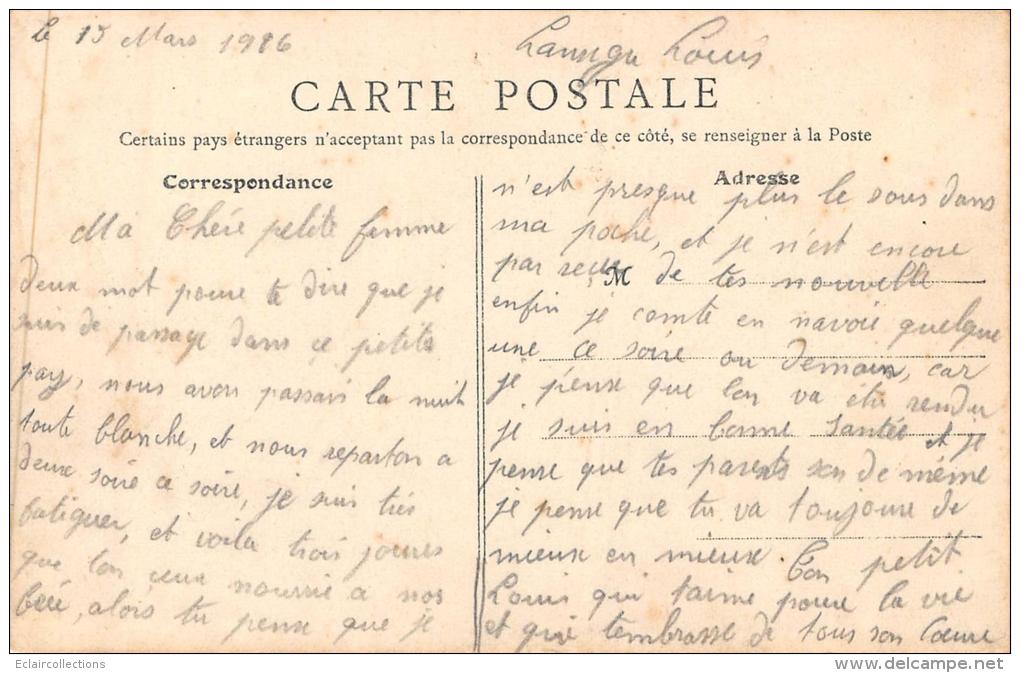 Le 15 Mars 1916
Louis
CARTE POSTALE
Certains pays étrangers n'acceptant pas la correspondance de ce côté, se renseigner à la Poste
Correspondance
Ma Chére petite femme
deux mot poure te dire que je
suis de passage dans ce petite
pay, nous avon passais la nuit
toute blanche, et nous reparton a
deux soire ce soire, je suis tiés
fatiguer, et voila trois joures
que lon ceux nourrie a nos
, alois tu pense que je
Adresse
n'est presque plus le sous dans
ma poche, et je n'est encore
par recus de tes nouvelle
M
enfin je comte en navoie quelque
une ce soire ou demain, car
je pense que lon va étre rendu
je suis en bonne santée et je
pense que tes parents son de méme
je pense que tu va toujoure de
mieux en mieux. Ton petit
Louis qui taime poure la vie
et qui tembrasse de tous son Cœure
Eclaircollections
www.delcampe.net